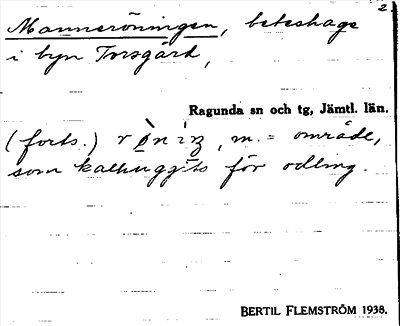 2
Mannerönningen, beteshage
i byn Torsgård,
Ragunda sn och tg, Jämtl. län.
(forts.) m. = område,
som kalhuggits för odling.
BERTIL FLEMSTRÖM 1938.